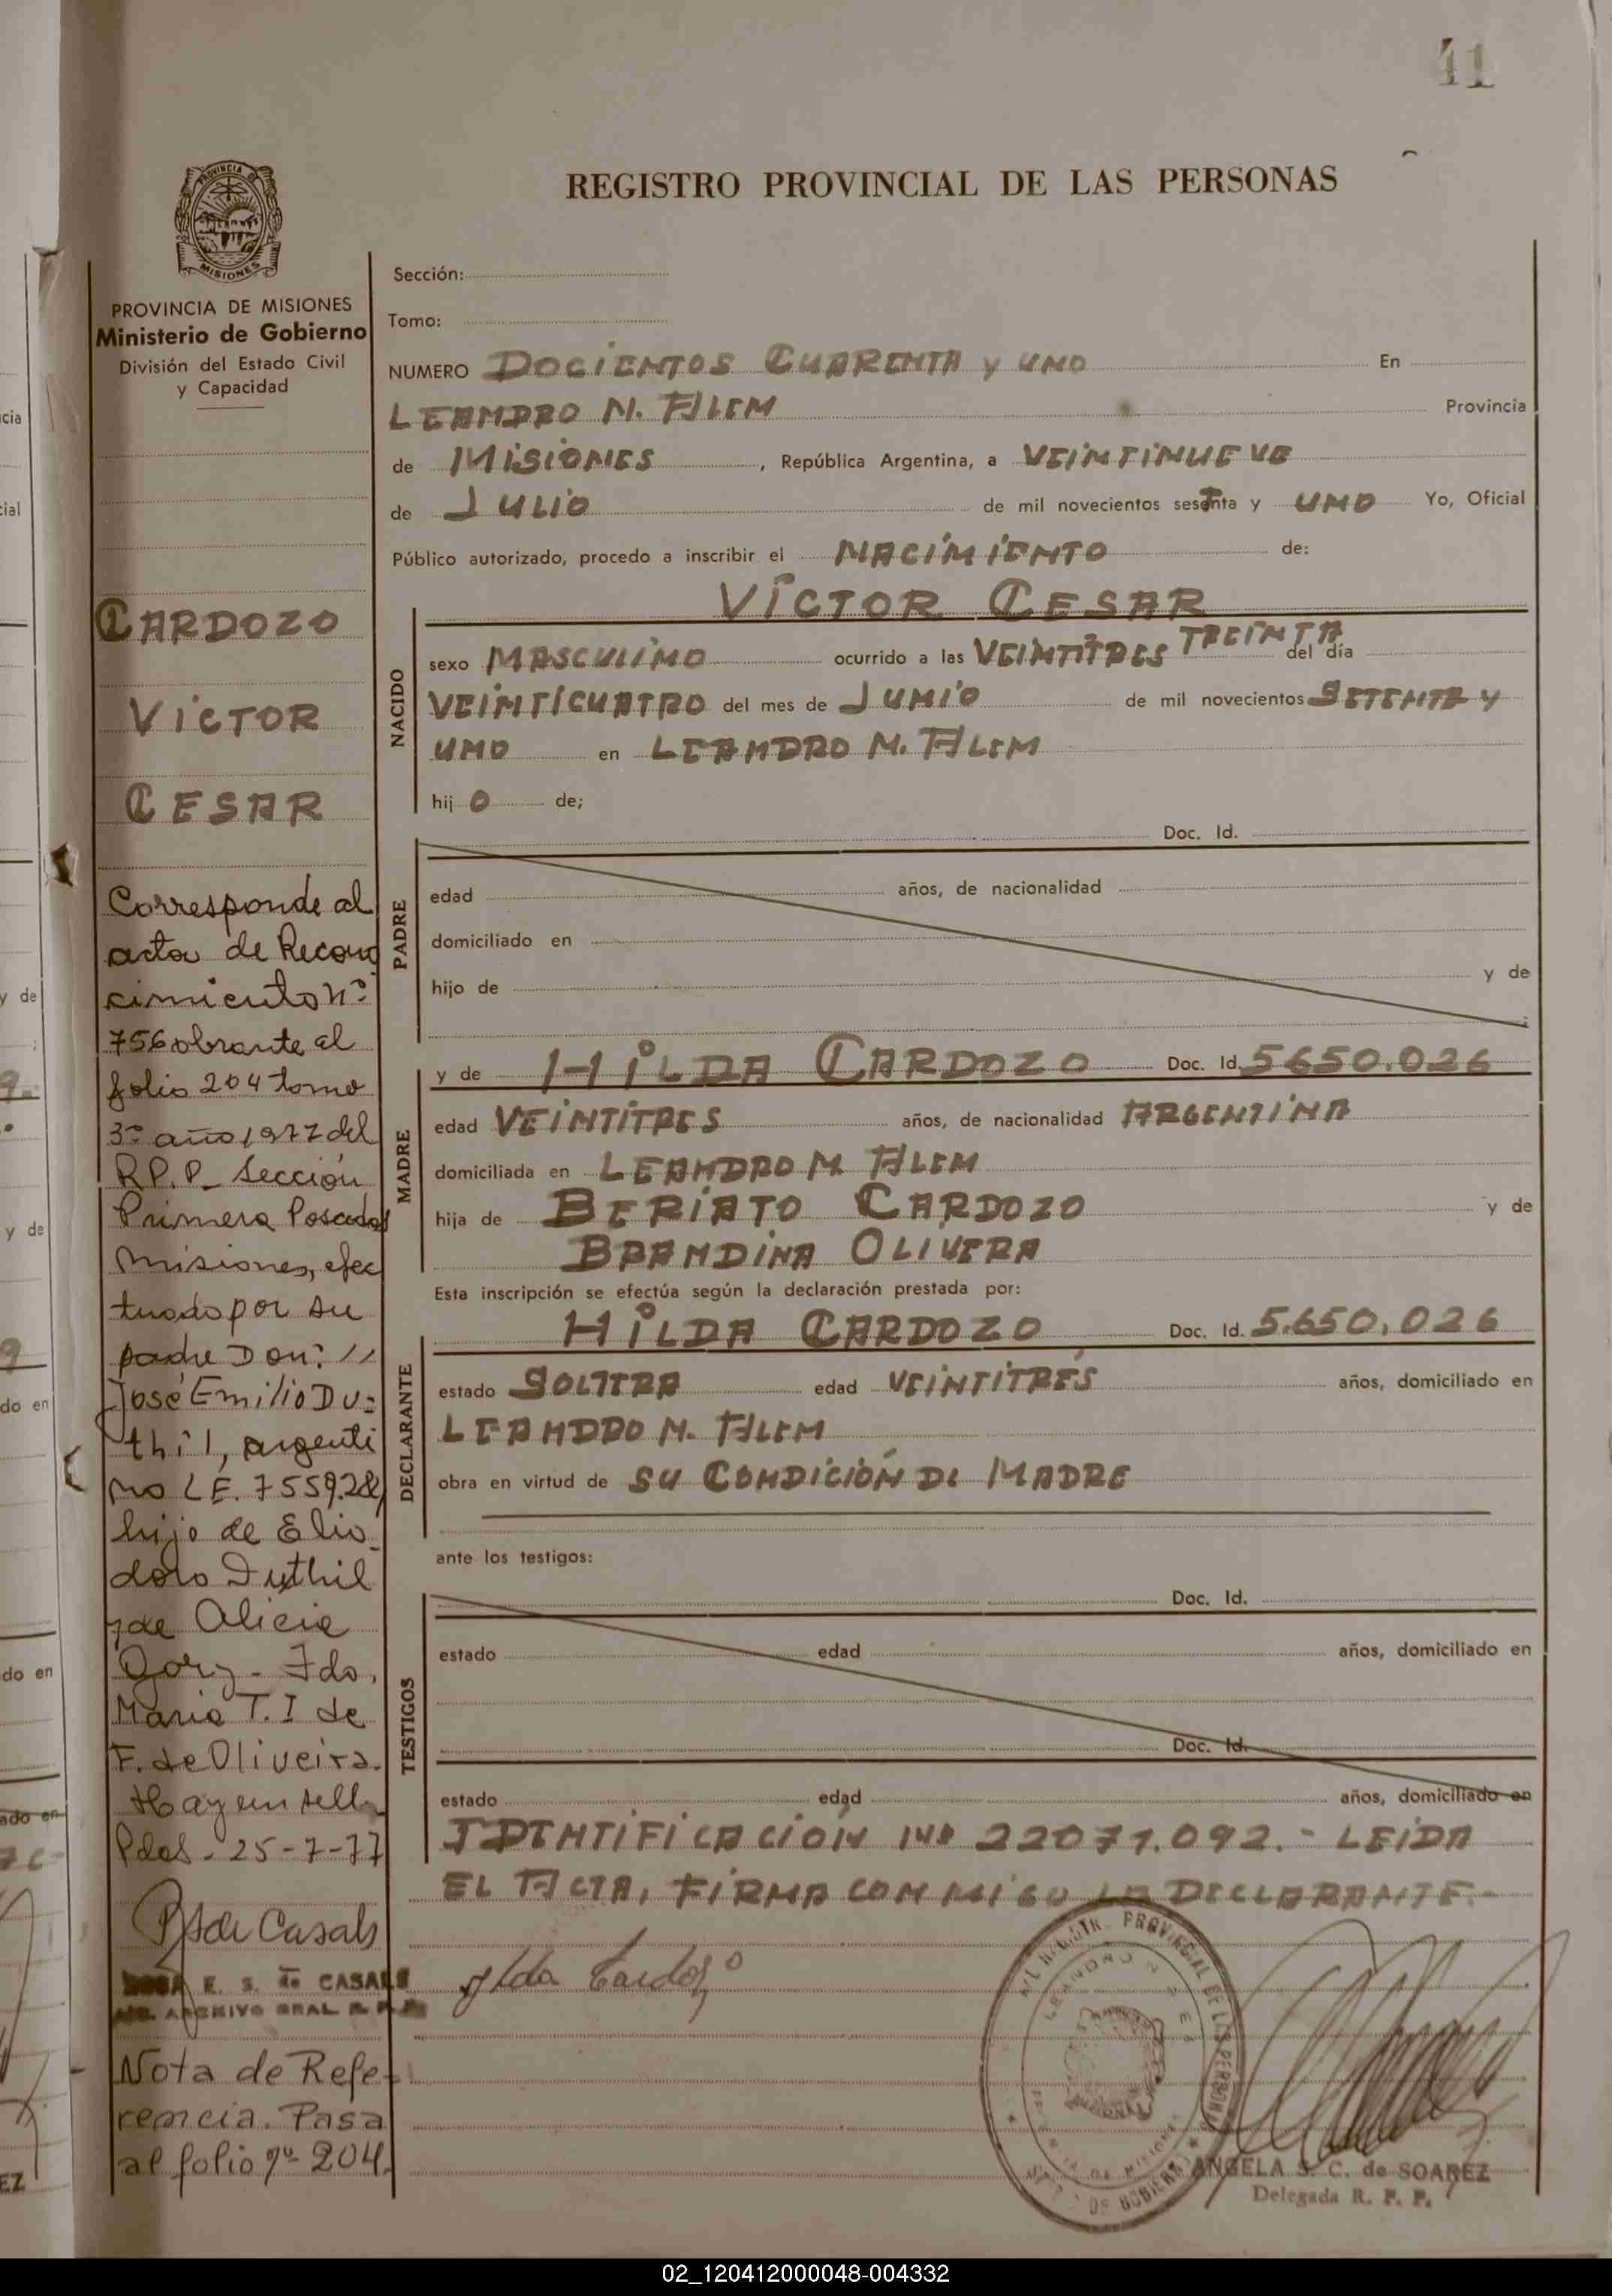 41
REGISTRO PROVINCIAL DE LAS PERSONAS
PROVINCIA DE
MISIONES
PROVINCIA DE MISIONES
Ministerio de Gobierno
División del Estado Civil
y Capacidad
CARDOZO
VICTOR
CESAR
Corresponde al
acta de Recono
cimiento nº
756 obrante al
folio 204 tomo
3º año 1977 del
R.P.P. Sección
Primera Posadas
Misiones, efec
tuado por su
padre Don: //
José Emilio Du=
thil, argenti
no L.E. 7559.28
hijo de Elio
doro Duthil
y de Alicia
Fdo,
Maria T. I de
F. de Oliveira.
Hay un sello
Pdas - 25-7-77
de Casals
E. S. de CASALS
ARCHIVO GRAL R. P. P.
Nota de Refe-
rencia. Pasa
al folio nº 204.
Sección:
Tomo:
NUMERO DOCIENTOS CUARENTA y UNO En
LEANDRO N. ALEM Provincia
de MISIONES, República Argentina, a VEINTINUEVE
de JULIO de mil novecientos setenta y UNO Yo, Oficial
Público autorizado, procedo a inscribir el NACIMIENTO de:
VICTOR CESAR
NACIDO
sexo MASCULINO ocurrido a las VEINTITRES TREINTA del día
VEINTICUATRO del mes de JUNIO de mil novecientos SETENTA Y
UNO en LEANDRO N. ALEM
hijo de;
PADRE
Doc. Id.
edad años, de nacionalidad
domiciliado en
hijo de y de
;
MADRE
y de HILDA CARDOZO Doc. Id. 5650.026
edad VEINTITRES años, de nacionalidad ARGENTINA
domiciliada en LEANDRO N. ALEM
hija de BERIATO CARDOZO y de
BRANDINA OLIVERA
Esta inscripción se efectúa según la declaración prestada por:
DECLARANTE
HILDA CARDOZO Doc. Id. 5.650,026
estado SOLTERA edad VEINTITRÉS años, domiciliado en
LEANDRO N. ALEM
obra en virtud de SU CONDICIÓN DE MADRE
ante los testigos:
TESTIGOS
Doc. Id.
estado edad años, domiciliado en
Doc. Id.
estado edad años, domiciliado en
IDENTIFICACIÓN Nº 22071.092.- LEIDA
EL ACTA, FIRMA CONMIGO LA DECLARANTE.-
Ilda Cardozo
PROVINCIAL DE LAS PERSONAS
LEANDRO N
DE GOBIERNO
ANGELA S. C. de SOAREZ
Delegada R. P. P.
cia
cial
y de
;
y de
do en
do en
ado en
EZ
02_120412000048-004332